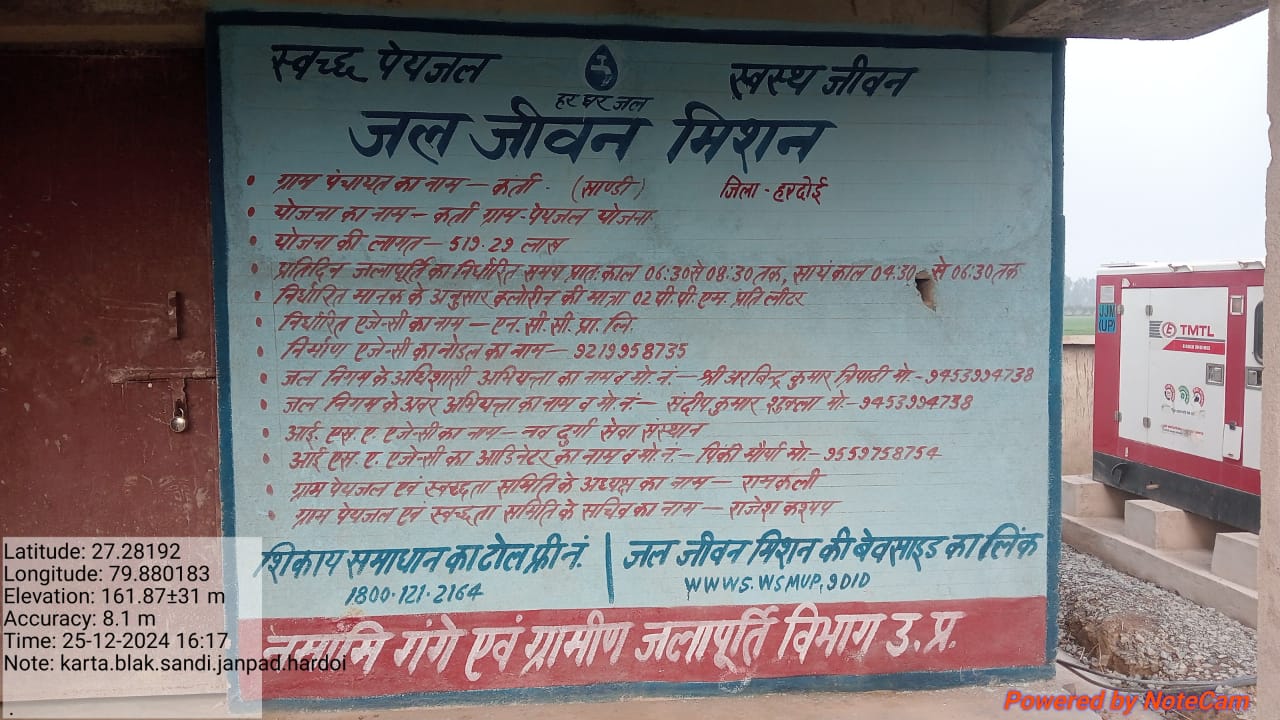 स्वच्छ पेयजल
स्वस्थ जीवन
हर घर जल
जल जीवन मिशन
• ग्राम पंचायत का नाम — कर्ता - (साण्डी) जिला - हरदोई
• योजना का नाम — कर्ता ग्राम-पेयजल योजना
• योजना की लागत — 519.29 लाख
• प्रतिदिन जलापूर्ति का निर्धारित समय प्रातः काल 06:30 से 08:30 तक, सायं काल 04:30 से 06:30 तक
• निर्धारित मानक के अनुसार क्लोरीन की मात्रा 02 पी.पी.एम. प्रति लीटर
• निर्धारित एजेन्सी का नाम — एन. सी. सी. प्रा. लि.
• निर्माण एजेन्सी का नोडल का नाम — 9219958735
• जल निगम के अधिशासी अभियन्ता का नाम व मो. नं. — श्री अरबिन्द्र कुमार त्रिपाठी मो.- 9453994738
• जल निगम के अवर अभियन्ता का नाम व मो. नं. — संदीप कुमार शुक्ला मो.- 9453994738
• आई. एस. ए. एजेन्सी का नाम — नव दुर्गा सेवा संस्थान
• आई. एस. ए. एजेन्सी का आर्डिनेटर का नाम व मो. न. — पिंकी मौर्या मो.- 9559758754
• ग्राम पेयजल एवं स्वच्छता समिति के अध्यक्ष का नाम — रामकली
• ग्राम पेयजल एवं स्वच्छता समिति के सचिव का नाम — राजेश कश्यप
शिकाय समाधान का टोल फ्री नं.
1800.121.2164
जल जीवन मिशन की बेवसाइड का लिंक
WWWS.WSMUP.9DID
नमामि गंगे एवं ग्रामीण जलापूर्ति विभाग उ. प्र.
JJM
(UP)
TMTL
Latitude: 27.28192
Longitude: 79.880183
Elevation: 161.87±31 m
Accuracy: 8.1 m
Time: 25-12-2024 16:17
Note: karta.blak.sandi.janpad.hardoi
Powered by NoteCam